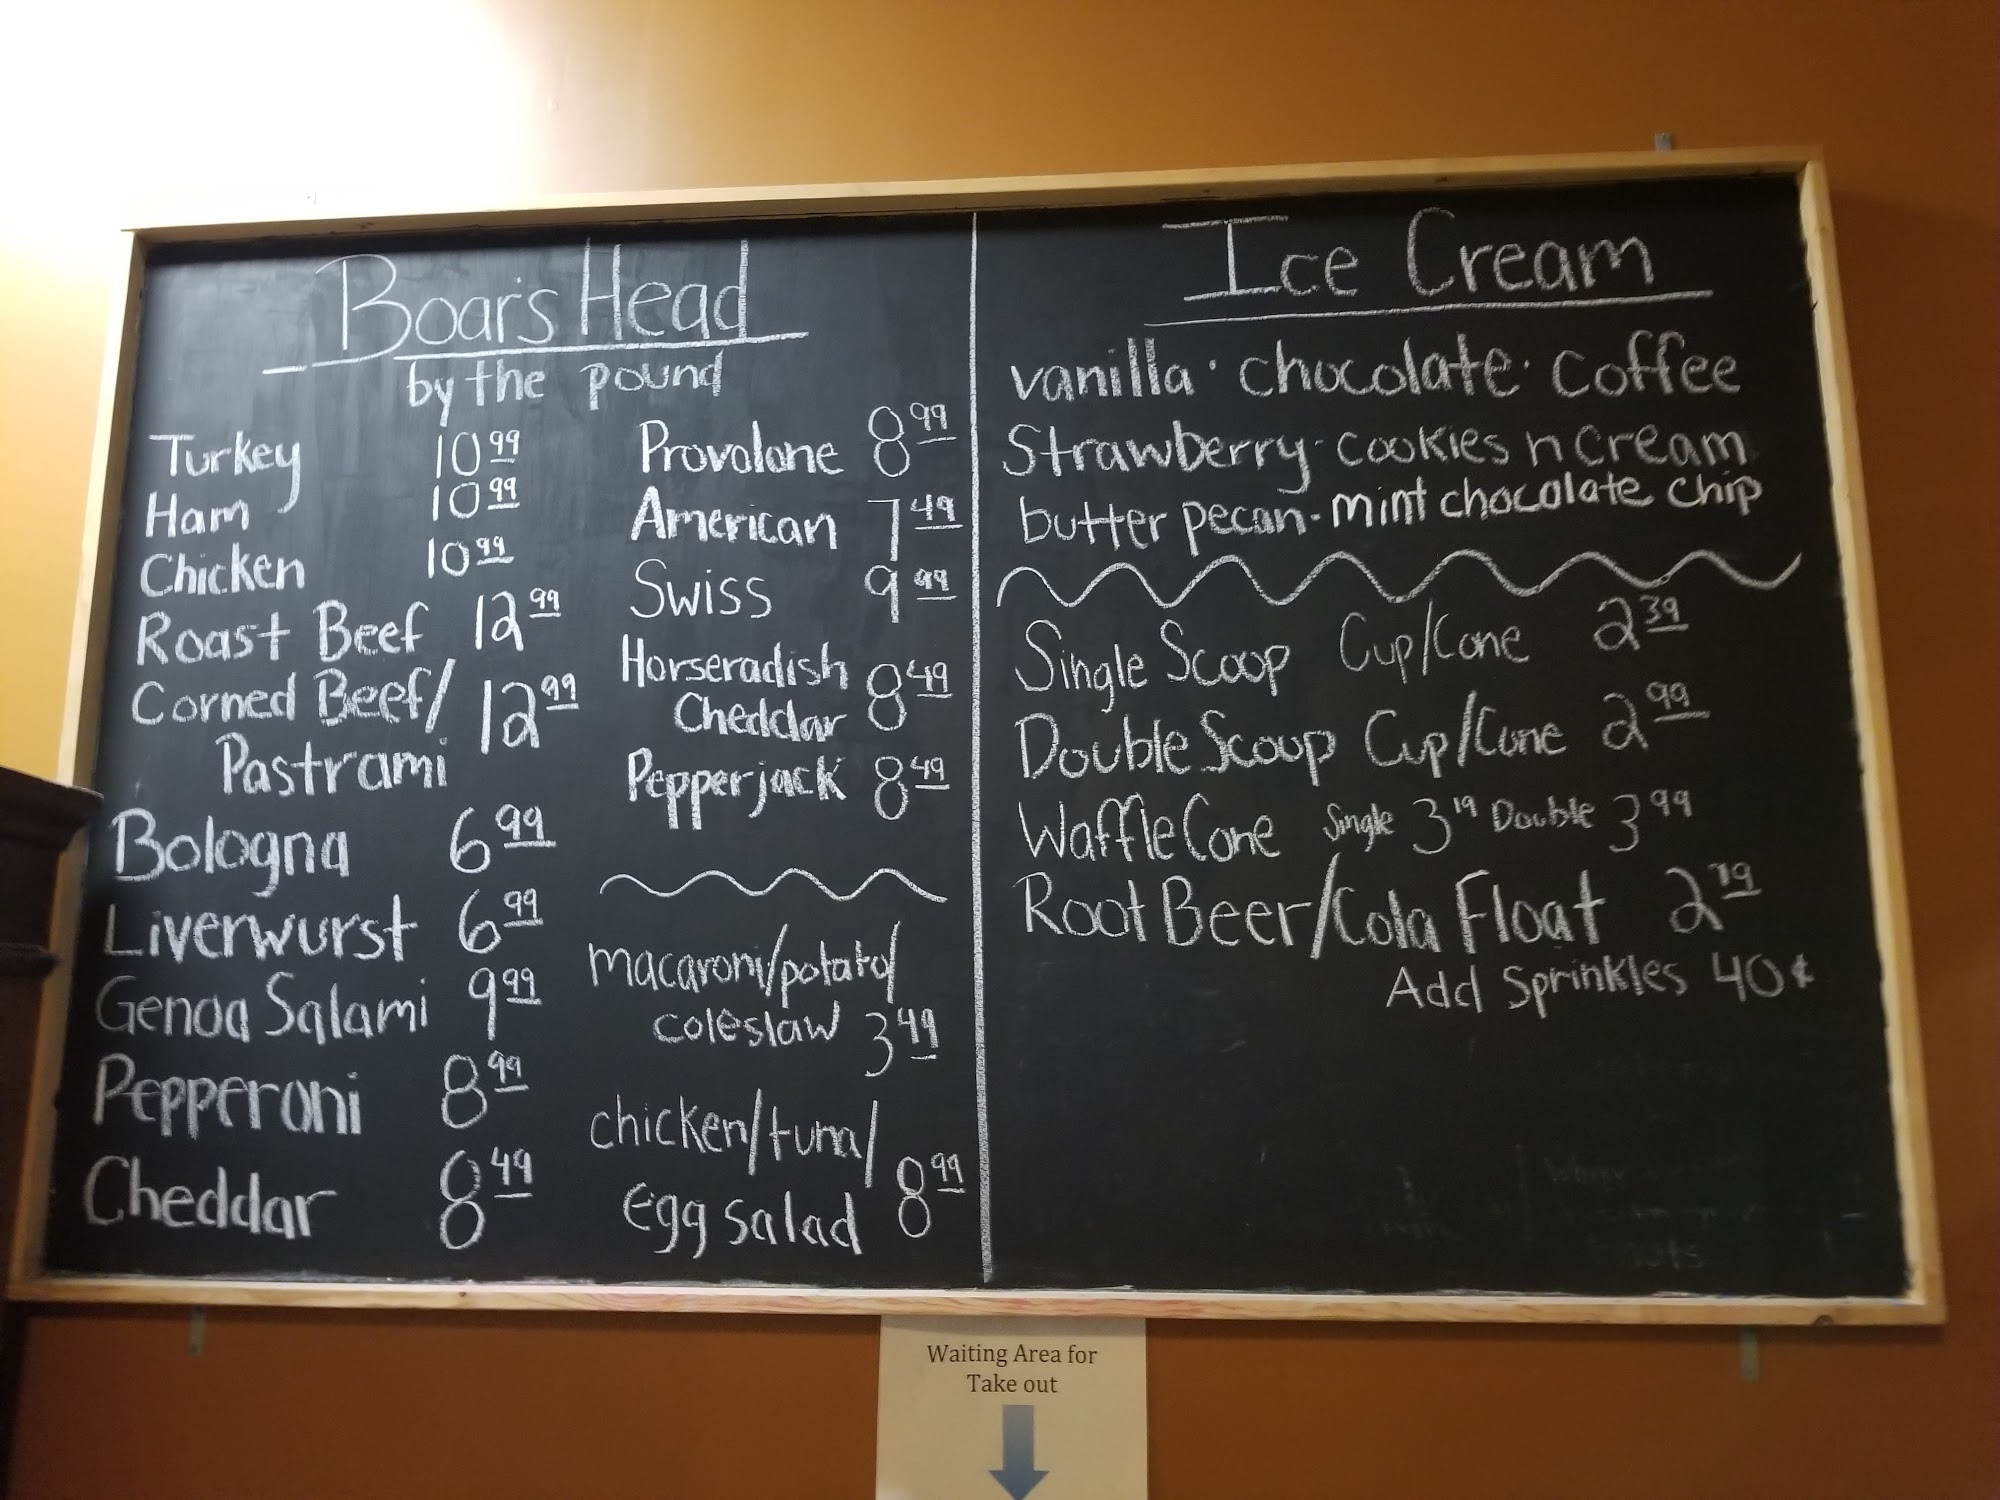 Boar's Head
by the pound
Turkey 10 99
Ham 10 99
Chicken 10 99
Roast Beef 12 99
Corned Beef/
Pastrami 12 99
Bologna 6 99
Liverwurst 6 99
Genoa Salami 9 99
Pepperoni 8 99
Cheddar 8 49
Provolone 8 99
American 7 49
Swiss 9 99
Horseradish
Cheddar 8 49
Pepperjack 8 49
macaroni/potato/
coleslaw 3 49
chicken/tuna/
egg salad 8 99
Ice Cream
vanilla · chocolate · coffee
Strawberry · cookies n cream
butter pecan - mint chocolate chip
Single Scoop Cup/Cone 2 39
Double Scoop Cup/Cone 2 99
Waffle Cone Single 3 19 Double 3 99
Root Beer/Cola Float 2 79
Add Sprinkles 40¢
Waiting Area for
Take out